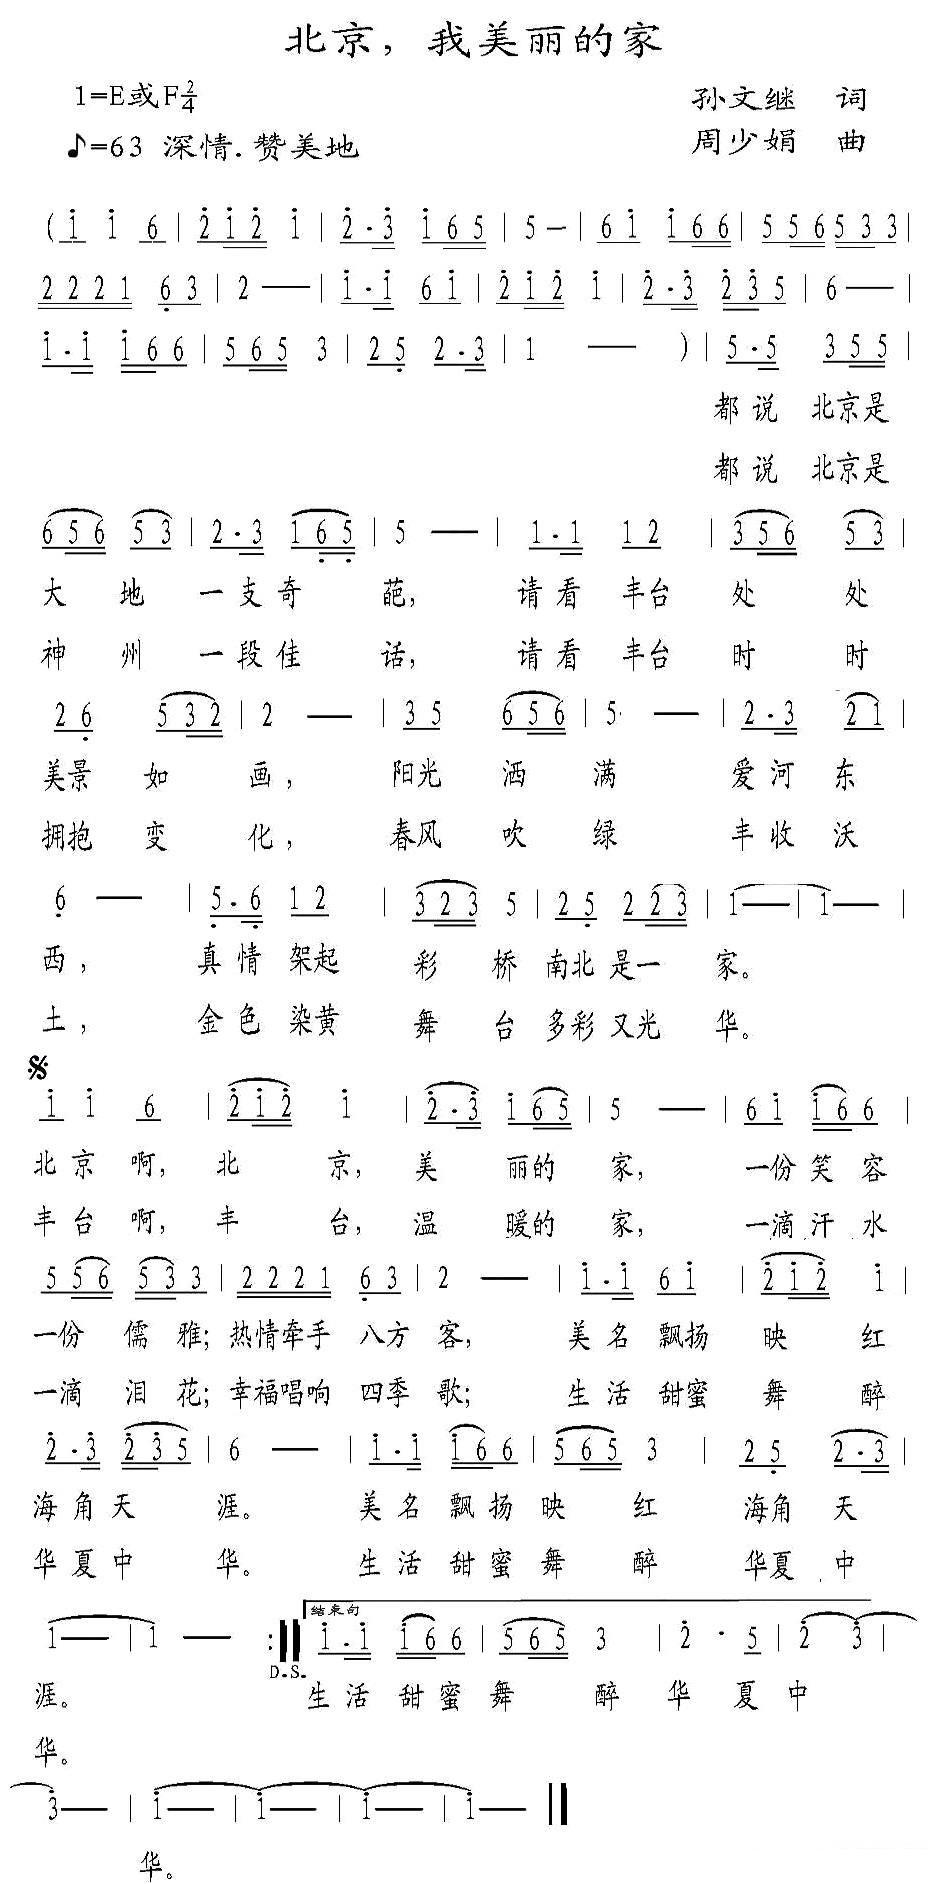 北京，我美丽的家
1=E或F2/4
孙文继 词
♪=63 深情.赞美地
周少娟 曲
(i i 6 | 2 i 2 i | 2 · 3 i 6 5 | 5 — | 6 i i 6 6 | 5 5 6 5 3 3 |
2 2 2 1 6 3 | 2 — | i · i 6 i | 2 i 2 i | 2 · 3 2 3 5 | 6 — |
i · i i 6 6 | 5 6 5 3 | 2 5 2 · 3 | 1 — ) | 5 · 5 3 5 5 |
都说 北京是
都说 北京是
6 5 6 5 3 | 2 · 3 1 6 5 | 5 — | 1 · 1 1 2 | 3 5 6 5 3 |
大 地 一支奇 葩， 请看 丰台 处 处
神 州 一段佳 话， 请看 丰台 时 时
2 6 5 3 2 | 2 — | 3 5 6 5 6 | 5 — | 2 · 3 2 1 |
美景 如 画， 阳光 洒 满 爱河 东
拥抱 变 化， 春风 吹 绿 丰收 沃
6 — | 5 · 6 1 2 | 3 2 3 5 | 2 5 2 2 3 | 1 — | 1 — |
西， 真情 架起 彩 桥 南北 是一 家。
土， 金色 染黄 舞 台 多彩 又光 华。
i i 6 | 2 i 2 i | 2 · 3 i 6 5 | 5 — | 6 i i 6 6 |
北京啊， 北 京， 美 丽的 家， 一份 笑 容
丰台啊， 丰 台， 温 暖的 家， 一滴 汗 水
5 5 6 5 3 3 | 2 2 2 1 6 3 | 2 — | i · i 6 i | 2 i 2 i |
一份 儒 雅；热情牵手 八方 客， 美名 飘扬 映 红
一滴 泪 花；幸福唱响 四季 歌； 生活 甜蜜 舞 醉
2 · 3 2 3 5 | 6 — | i · i i 6 6 | 5 6 5 3 | 2 5 2 · 3 |
海角天 涯。 美名 飘扬 映 红 海角 天
华夏中 华。 生活 甜蜜 舞 醉 华夏 中
结束句
1 — | 1 — :‖ i · i i 6 6 | 5 6 5 3 | 2 · 5 | 2 3 |
D.S.
涯。 生活 甜蜜 舞 醉 华 夏 中
华。
3 — | i — | i — | i — | i — ‖
华。